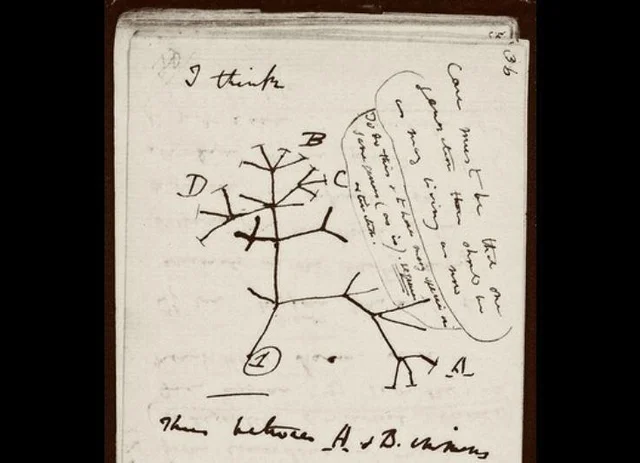 36
I think
Case must be that one
generation then should be
as many living as now
To do this & to have many species in
same genus (as is). requires
extinction.
B
D
C
A
1
Thus between A & B. immens